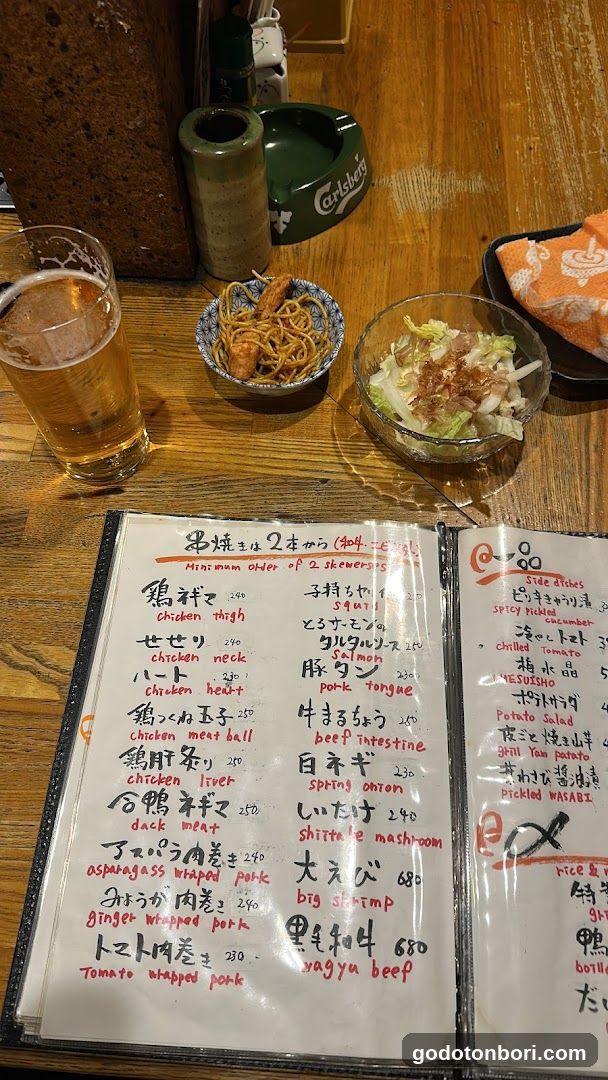 Carlsberg
串焼きは2本から
Minimum order of 2 skewerses
鶏ネギマ 240
chicken thigh
せせり 240
chicken neck
ハート 230
chicken heart
鶏つくね玉子 250
chicken meat ball
鶏肝炙り 250
chicken liver
合鴨ネギマ 250
dack meat
アスパラ肉巻き 240
asparagass wrapped pork
みょうが肉巻き 240
ginger wrapped pork
トマト肉巻き 230
Tomato wrapped pork
子持ちヤイカ 250
squid
とろサーモンの
タルタルソース 250
Salmon
豚タン 230
pork tongue
牛まるちょう 250
beef intestine
白ネギ 230
spring onion
しいたけ 240
shiitake mashroom
大えび 680
big shrimp
黒毛和牛 680
wagyu beef
一品
side dishes
ピリ辛きゅうり漬
spicy pickled
cucumber
冷やしトマト
chilled Tomato
梅水晶
UMESUISHO
ポテトサラダ
Potato Salad
皮ごと焼き山芋
grill Yam patato
茎わさび醤油漬
pickled WASABI
〆
rice &
godotonbori.com